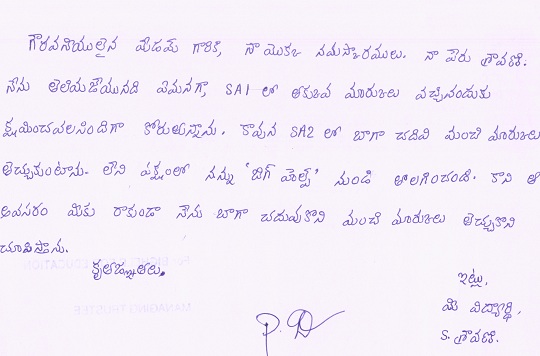 గౌరవనీయులైన మేడమ్ గారికి, నా యొక్క నమస్కారములు. నా పేరు శ్రావణి.
నేను తెలియజేయునది ఏమనగా, SA1 లో తక్కువ మార్కులు వచ్చినందుకు
క్షమించవలసిందిగా కోరుతున్నాను. కావున SA2 లో బాగా చదివి మంచి మార్కులు
తెచ్చుకుంటాను. లేని పక్షంలో నన్ను 'బిగ్ హెల్ప్' నుండి తొలగించండి. కాని ఆ
అవసరం మీకు రాకుండా నేను బాగా చదువుకొని మంచి మార్కులు తెచ్చుకొని
చూపిస్తాను.
కృతజ్ఞతలు.
ఇట్లు,
మీ విద్యార్థి,
S. శ్రావణి.